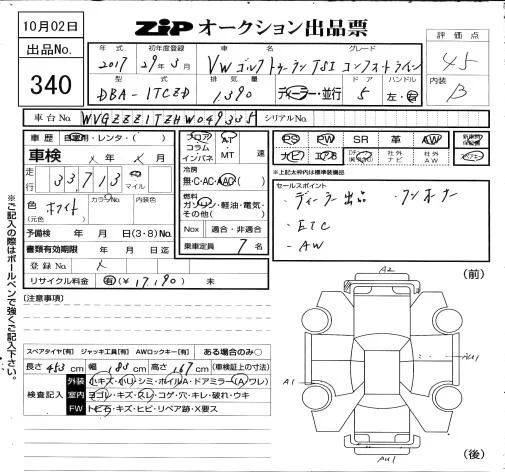 10月02日
ZIP オークション出品票
出品No.
340
年式 初年度登録 車名 グレード
2017 29年3月 VW ゴルフ トゥーラン TSI コンフォートライン
評価点
4.5
型式 排気量 ドア ハンドル
DBA-1TCZD 1,390 ディーラー・並行 5 左・右
内装
B
車台No. WVGZZZ1TZHW049335 シリアルNo.
車歴 自家用・レンタ・( )
車検 年 月
走行 33,713 km マイル
色 (元色) ホワイト カラーNo. 内装色
予備検 年 月 日(3・8)No.
書類有効期限 年 月 日迄
登録No.
リサイクル料金 有(¥17,190) 未
フロア AT
コラム
インパネ MT 速
冷房
無・C・AC・AAC( )
燃料
ガソリン・軽油・電気・
その他( )
Nox 適合・非適合
乗車定員 7 名
PS PW SR 革 AW 新車時保証書
ナビ エアB 社外ナビ 社外AW
※上記太枠内は標準装備品
セールスポイント
・ディーラー出品 ・ワンオーナー
・ETC
・AW
※ご記入の際はボールペンで強くご記入下さい。
(注意事項)
スペアタイヤ[有] ジャッキ工具[有] AWロックキー[有] ある場合のみ○
長さ 453 cm 幅 183 cm 高さ 167 cm (車検証上の寸法)
検査記入
外装 小キズ・小U・シミ・ホイルA・ドアミラー(A)ワレ)
室内 ヨゴレ・キズ・スレ・コゲ・穴・キレ・破れ・ウキ
FW トビ石・キズ・ヒビ・リペア跡・X要ス
(前)
A2
A1
AU1
AU1
(後)